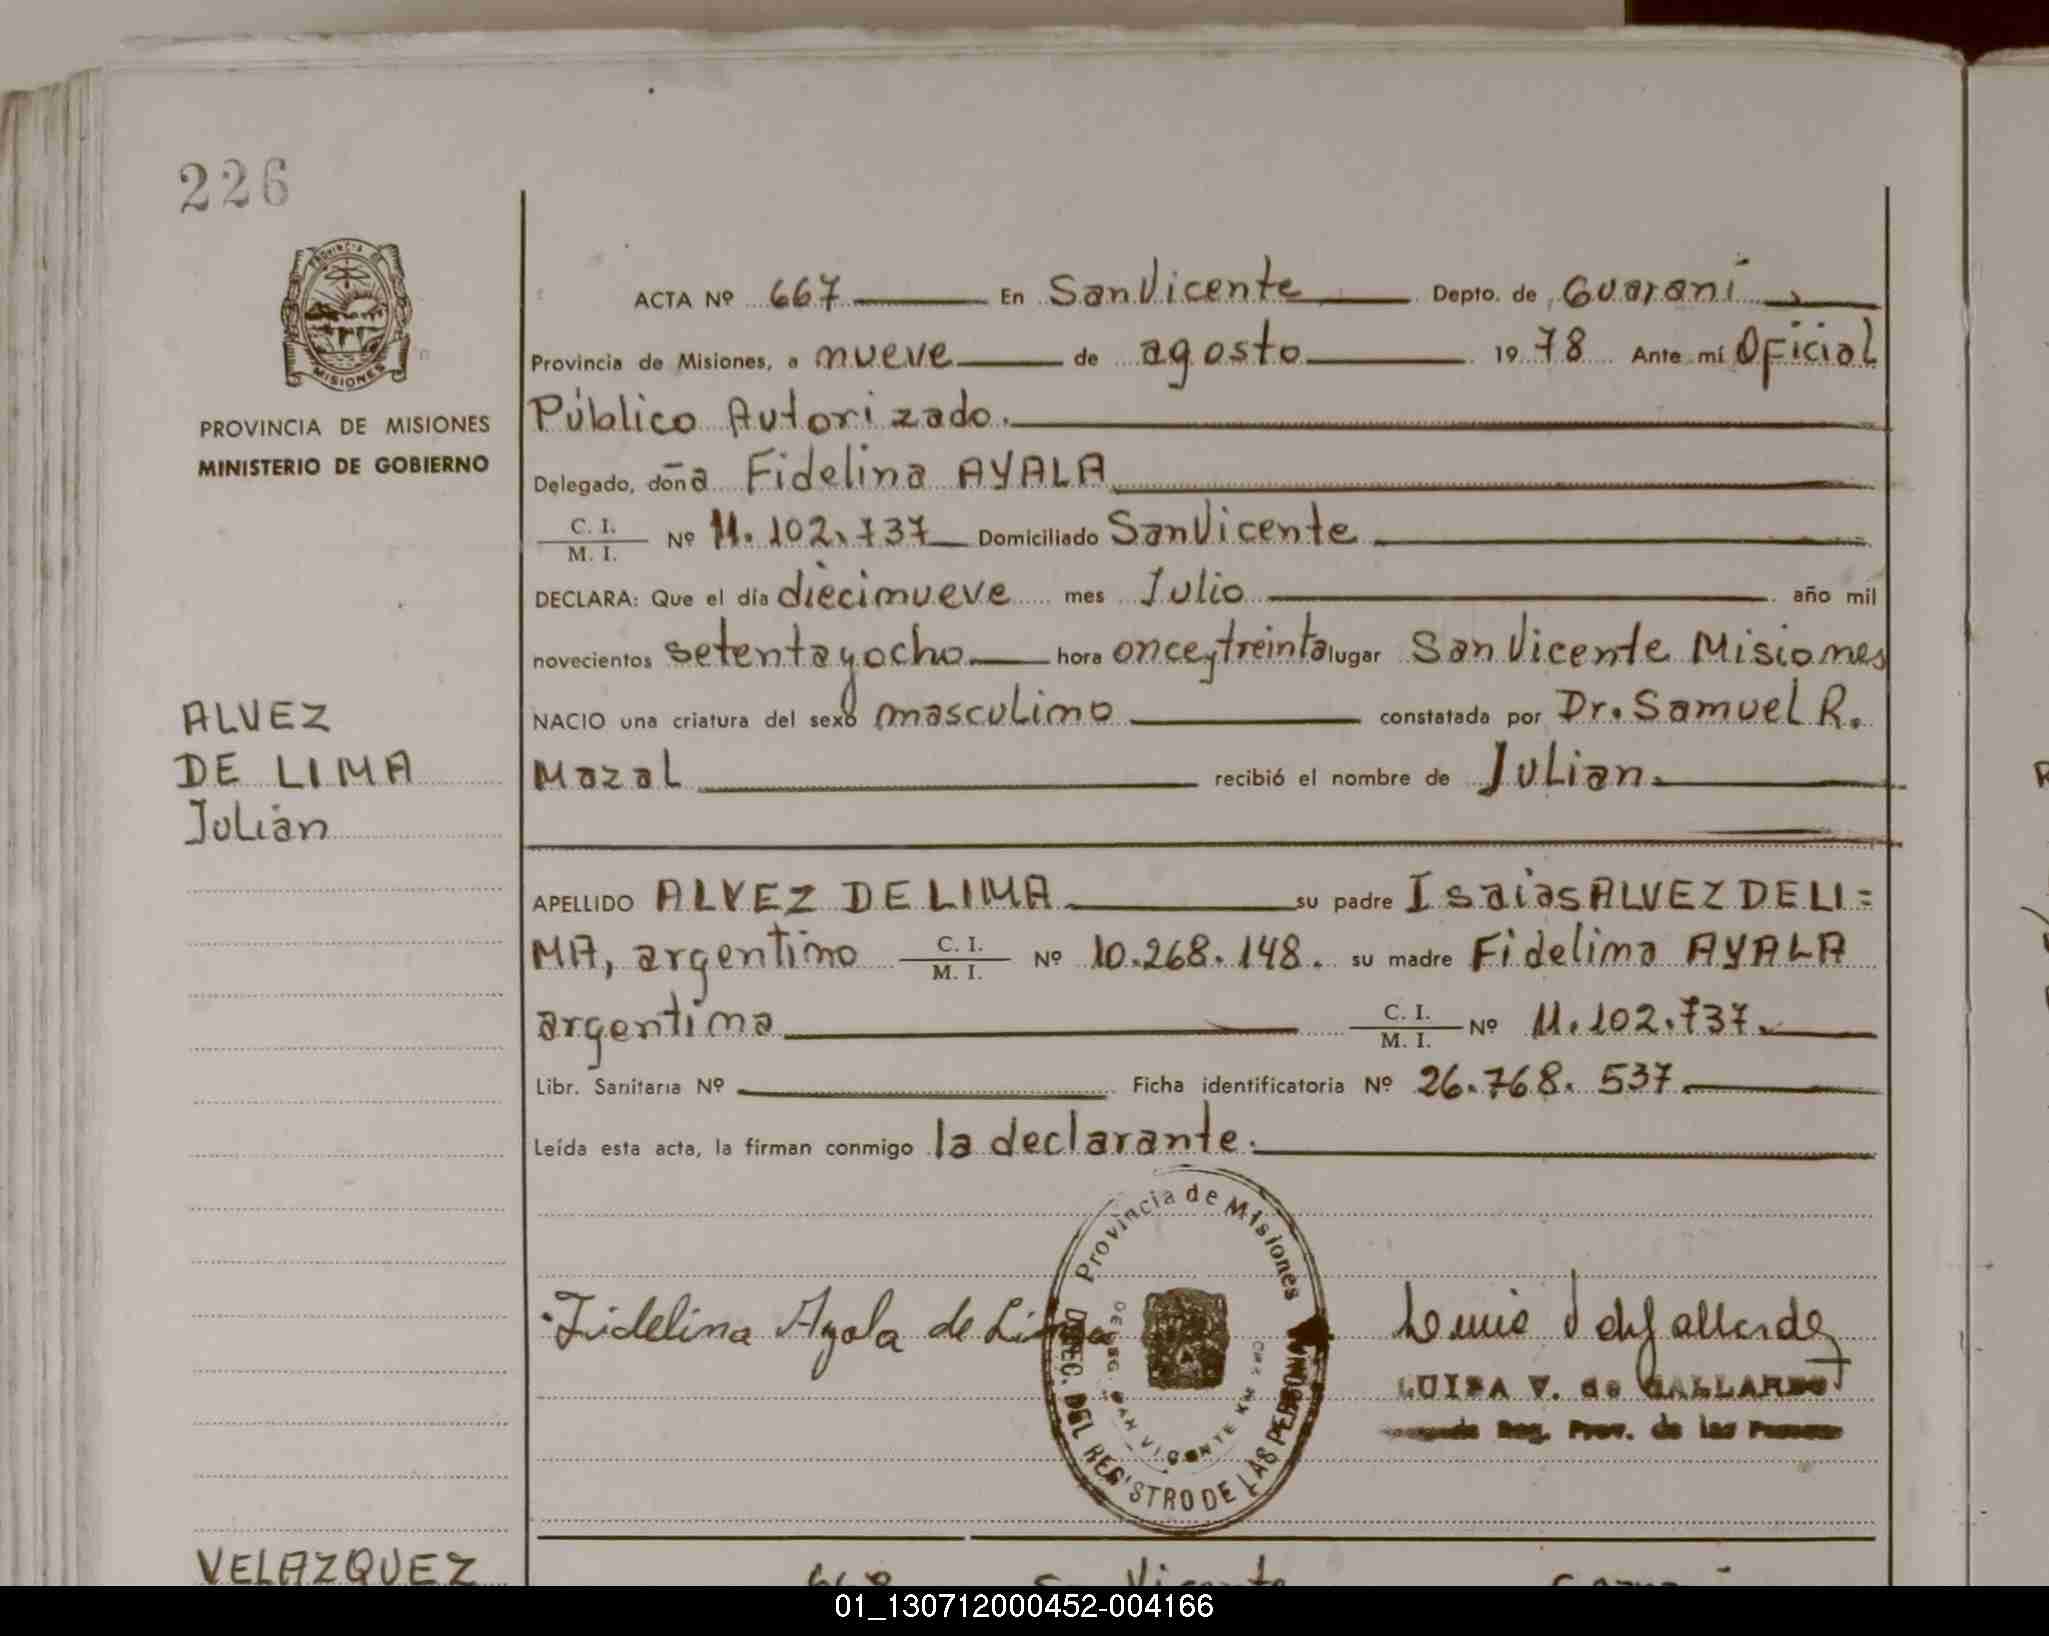 226
PROVINCIA DE MISIONES
PROVINCIA DE MISIONES
MINISTERIO DE GOBIERNO
ALVEZ
DE LIMA
Julián
ACTA Nº 667 En San Vicente Depto. de Guaraní
Provincia de Misiones, a nueve de agosto 1978 Ante mí Oficial
Público Autorizado.
Delegado, doña Fidelina AYALA
C. I.
M. I. Nº 11.102.737 Domiciliado San Vicente
DECLARA: Que el día diecinueve mes Julio año mil
novecientos setenta y ocho hora once y treinta lugar San Vicente Misiones
NACIO una criatura del sexo masculino constatada por Dr. Samuel R.
Mazal recibió el nombre de Julian.
APELLIDO ALVEZ DE LIMA su padre Isaias ALVEZ DE LI=
MA, argentino C. I. M. I. Nº 10.268.148. su madre Fidelina AYALA
argentina C. I. M. I. Nº 11.102.737.
Libr. Sanitaria Nº Ficha identificatoria Nº 26.768.537
Leída esta acta, la firman conmigo la declarante.
Provincia de Misiones
DIREC. DEL REGISTRO DE LAS PERSONAS
SAN VICENTE KM
Fidelina Ayala de Lima
LUISA V. de GALLARDO
Reg. Prov. de las Personas
VELAZQUEZ
668 San Vicente Guaraní
01_130712000452-004166